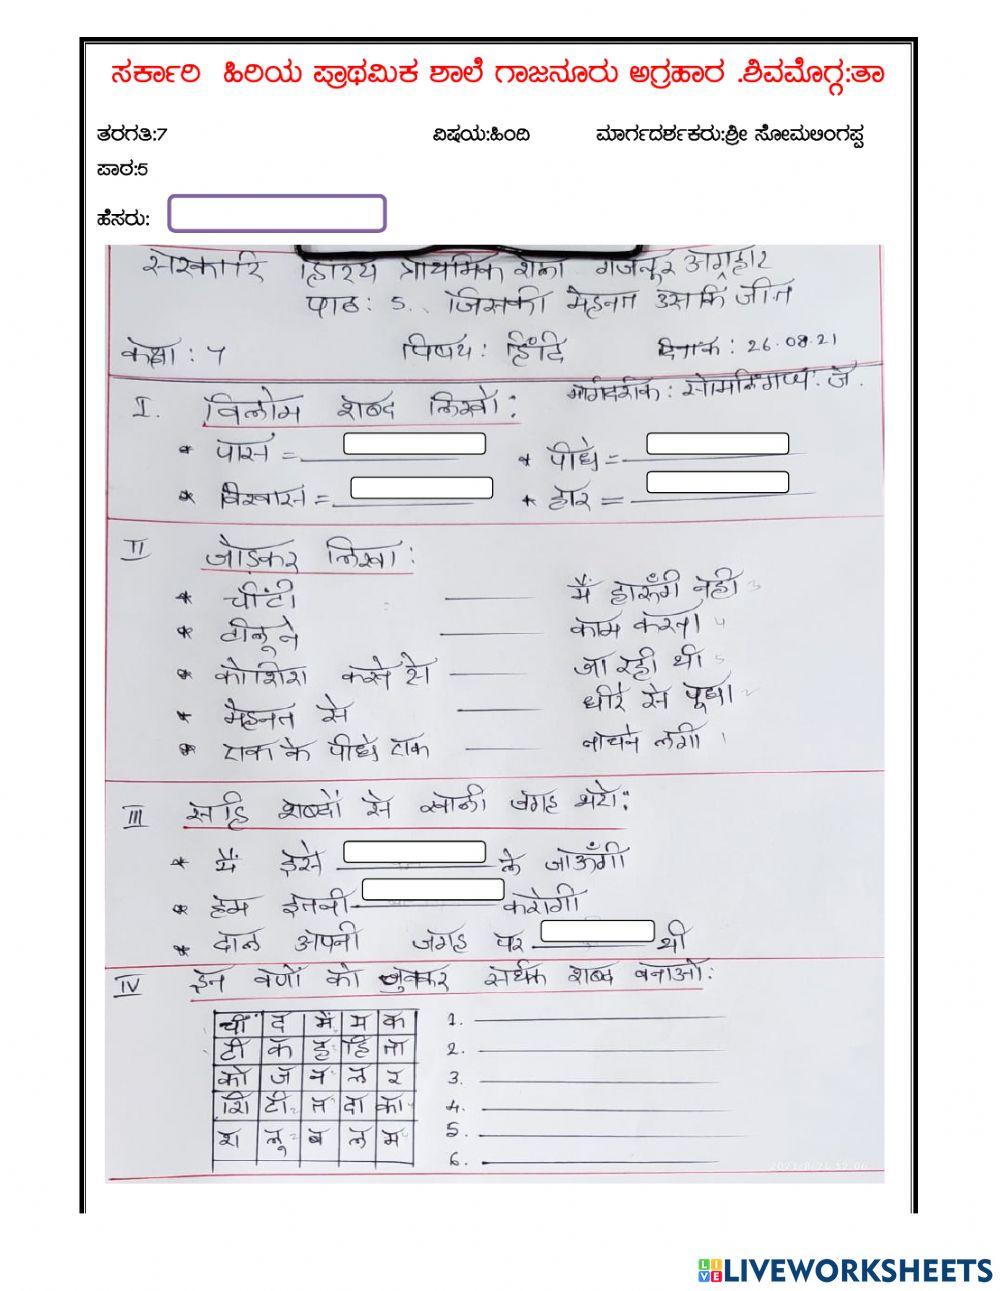 ಸರ್ಕಾರಿ ಹಿರಿಯ ಪ್ರಾಥಮಿಕ ಶಾಲೆ ಗಾಜನೂರು ಅಗ್ರಹಾರ .ಶಿವಮೊಗ್ಗ:ತಾ
ತರಗತಿ:7 ವಿಷಯ:ಹಿಂದಿ ಮಾರ್ಗದರ್ಶಕರು:ಶ್ರೀ ಸೋಮಲಿಂಗಪ್ಪ
ಪಾಠ:5
ಹೆಸರು:
सरकारि हिरिय प्राथमिक शाला गाजनूर अग्रहार
पाठ: 5.. जिसकी मेहनत उसकि जीत
कक्षा : 7 विषय : हिंदि दिनाकं : 26.08.21
मार्गदर्शक : सोमलिंगप्प. जे.
I. विलोम शब्द लिखो :
* पास = * पीछे =
* विश्वास = * हार =
II जोड़कर लिखो :
* चींटी मैं हारूँगी नही 3
* टीलू ने काम करना 4
* कोशिश करने से जा रही थी 5
* मेहनत से धीरे से पूछा 2
* एक के पीछे एक नाचने लगी 1
III सहि शब्दों से खाली जगह भरो :
* मैं इसे ले जाऊँगी
* हम इतनी करोगी
* दाल अपनी जगह पर थी
IV इन वर्णों को चुनकर सर्थक शब्द बनाओ :
चीं द में म क 1.
टी क ह हि ना 2.
को ज न ल र 3.
शि टी न दा का 4.
श लू ब ल म 5.
6.
LIVEWORKSHEETS